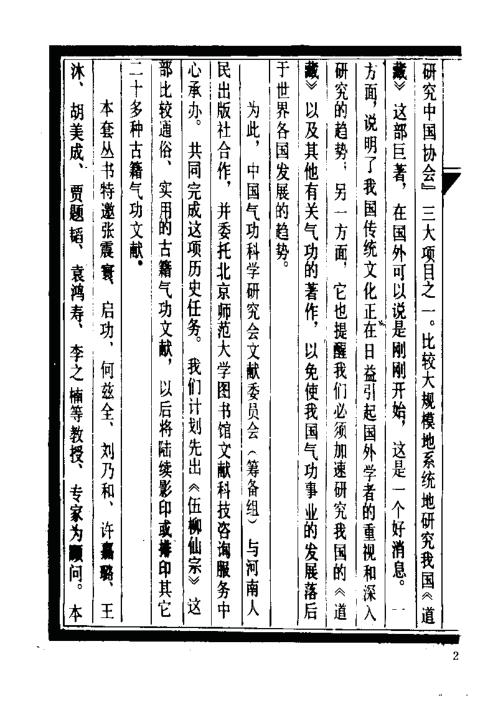 研究中国协会』三大项目之一。比较大规模地系统地研究我国《道
藏》这部巨著，在国外可以说是刚刚开始，这是一个好消息。一
方面，说明了我国传统文化正在日益引起国外学者的重视和深入
研究的趋势；另一方面，它也提醒我们必须加速研究我国的《道
藏》以及其他有关气功的著作，以免使我国气功事业的发展落后
于世界各国发展的趋势。
为此，中国气功科学研究会文献委员会（筹备组）与河南人
民出版社合作，并委托北京师范大学图书馆文献科技咨询服务中
心承办。共同完成这项历史任务。我们计划先出《伍柳仙宗》这
部比较通俗、实用的古籍气功文献，以后将陆续影印或排印其它
二十多种古籍气功文献。
本套丛书特邀张震寰、启功，何兹全、刘乃和、许嘉璐、王
沐、胡美成、贾题韬、袁鸿寿、李之楠等教授、专家为顾问。本
2